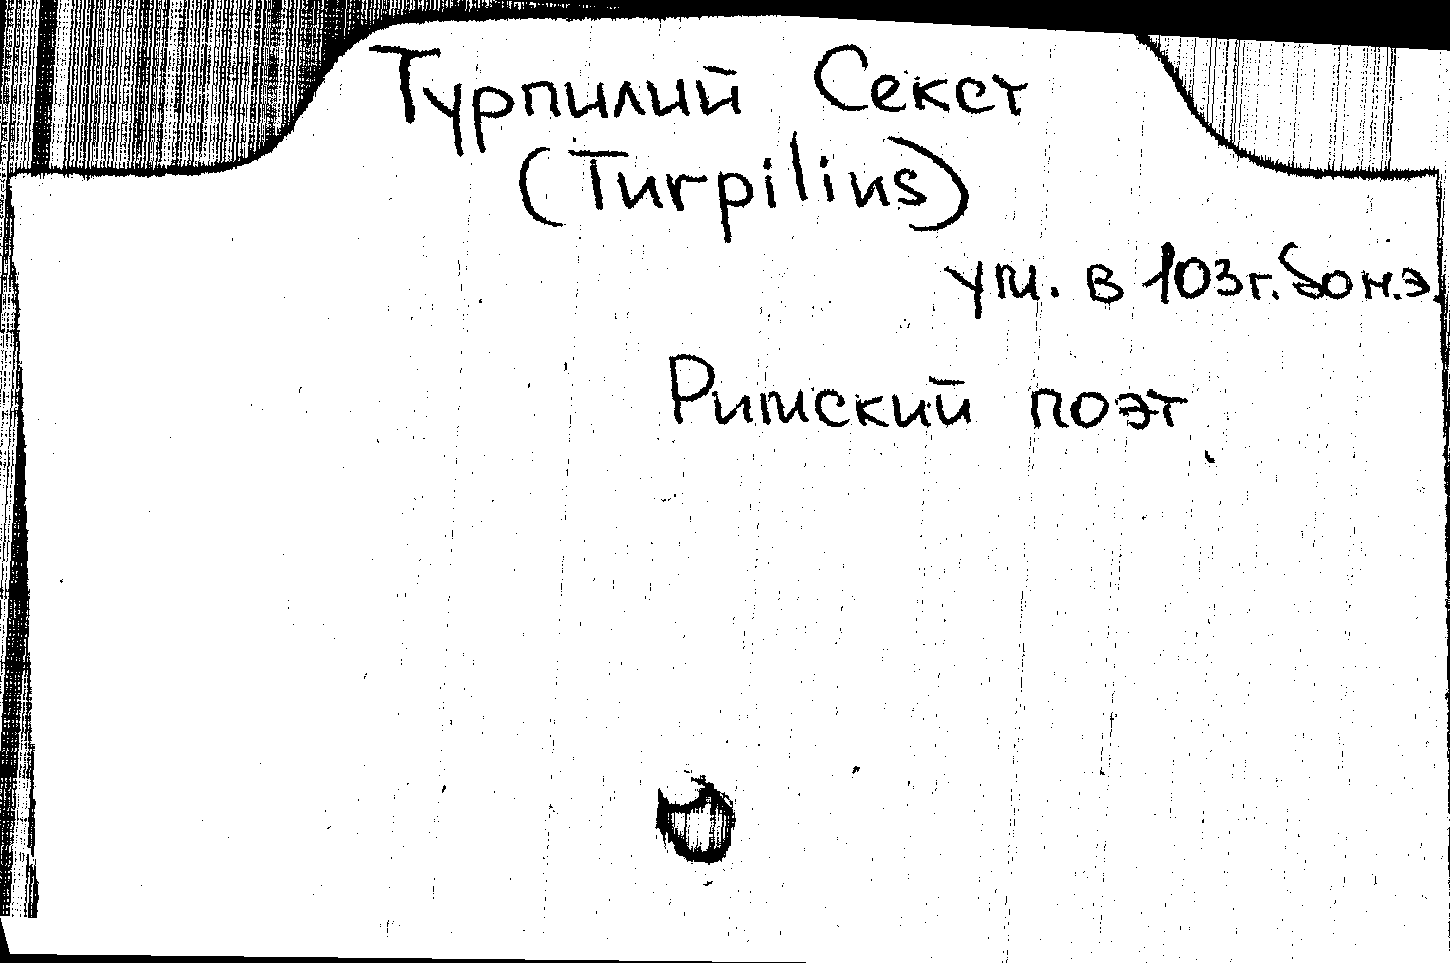 Турпилий Секст
(Turpilius)
ум. в 103 г. до н.э.
Римский поэт